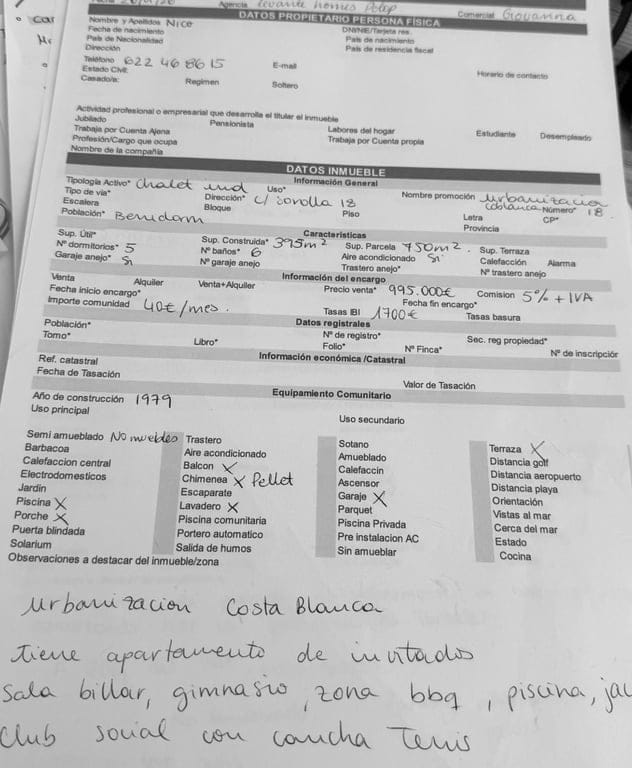 car
Agencia Levante homes Polop Comercial Giovanna
DATOS PROPIETARIO PERSONA FÍSICA
Nombre y Apellidos Nice
DNI/NIE/Tarjeta res.
Fecha de nacimiento País de nacimiento
País de Nacionalidad País de residencia fiscal
Dirección
Teléfono 622 46 86 15 E-mail Horario de contacto
Estado Civil:
Casado/a: Regimen Soltero
Actividad profesional o empresarial que desarrolla el titular el inmueble
Jubilado Pensionista Labores del hogar Estudiante Desempleado
Trabaja por Cuenta Ajena Trabaja por Cuenta propia
Profesión/Cargo que ocupa
Nombre de la compañía
DATOS INMUEBLE
Información General
Tipología Activo* chalet ind Uso* Nombre promoción urbanizacion
Tipo de vía* Dirección* c/ sorolla 18 cblanca Número* 18
Escalera Bloque Piso Letra CP*
Población* Benidorm Provincia
Características
Sup. Útil* Sup. Construida* 395m² Sup. Parcela 750m². Sup. Terraza
Nº dormitorios* 5 Nº baños* 6 Aire acondicionado Si Calefacción Alarma
Garaje anejo* Si Nº garaje anejo Trastero anejo* Nº trastero anejo
Información del encargo
Venta Alquiler Venta+Alquiler Precio venta* 995.000€ Comision 5% + IVA
Fecha inicio encargo* Fecha fin encargo*
Importe comunidad 40€/mes. Tasas IBI 1700€ Tasas basura
Datos registrales
Población* Nº de registro* Sec. reg propiedad*
Tomo* Libro* Folio* Nº Finca* Nº de inscripción
Información económica /Catastral
Ref. catastral
Fecha de Tasación Valor de Tasación
Equipamiento Comunitario
Año de construcción 1979
Uso principal Uso secundario
Semi amueblado No muebles Trastero Sotano Terraza X
Barbacoa Aire acondicionado Amueblado Distancia golf
Calefaccion central Balcon X Calefaccin Distancia aeropuerto
Electrodomesticos Chimenea X Pellet Ascensor Distancia playa
Jardin Escaparate Garaje X Orientación
Piscina X Lavadero X Parquet Vistas al mar
Porche X Piscina comunitaria Piscina Privada Cerca del mar
Puerta blindada Portero automatico Pre instalacion AC Estado
Solarium Salida de humos Sin amueblar Cocina
Observaciones a destacar del inmueble/zona
Urbanizacion Costa Blanca
tiene apartamento de invitados
Sala billar, gimnasio, zona bbq, piscina, jac
Club social con cancha Tenis